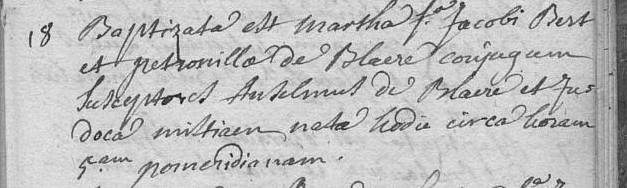 18 Baptizata est Martha f.a Jacobi Bert
et petronillæ de Blaere conjugum
Susceptores Anselmus de Blaere et Ju=
doca mistiaen nata hodie circa horam
5.am pomeridianam.